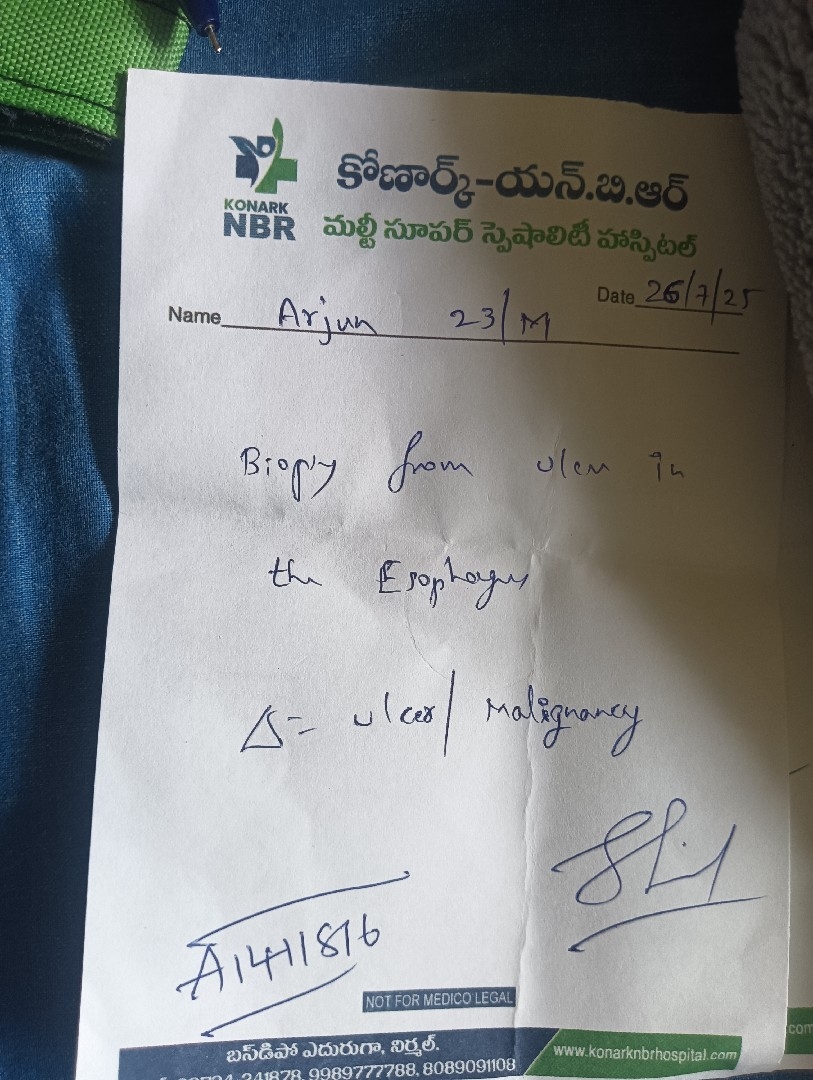 కోణార్క్-యన్.బి.ఆర్
KONARK
NBR
మల్టీ సూపర్ స్పెషాలిటీ హాస్పిటల్
Date 26/7/25
Name Arjun 23/M
Biopsy from ulcer in
the Esophagus
Δ= ulcer/ Malignancy
A1411816
NOT FOR MEDICO LEGAL
బస్‌డిపో ఎదురుగా, నిర్మల్.
www.konarknbrhospital.com
241878, 9989777788, 8089091108
com